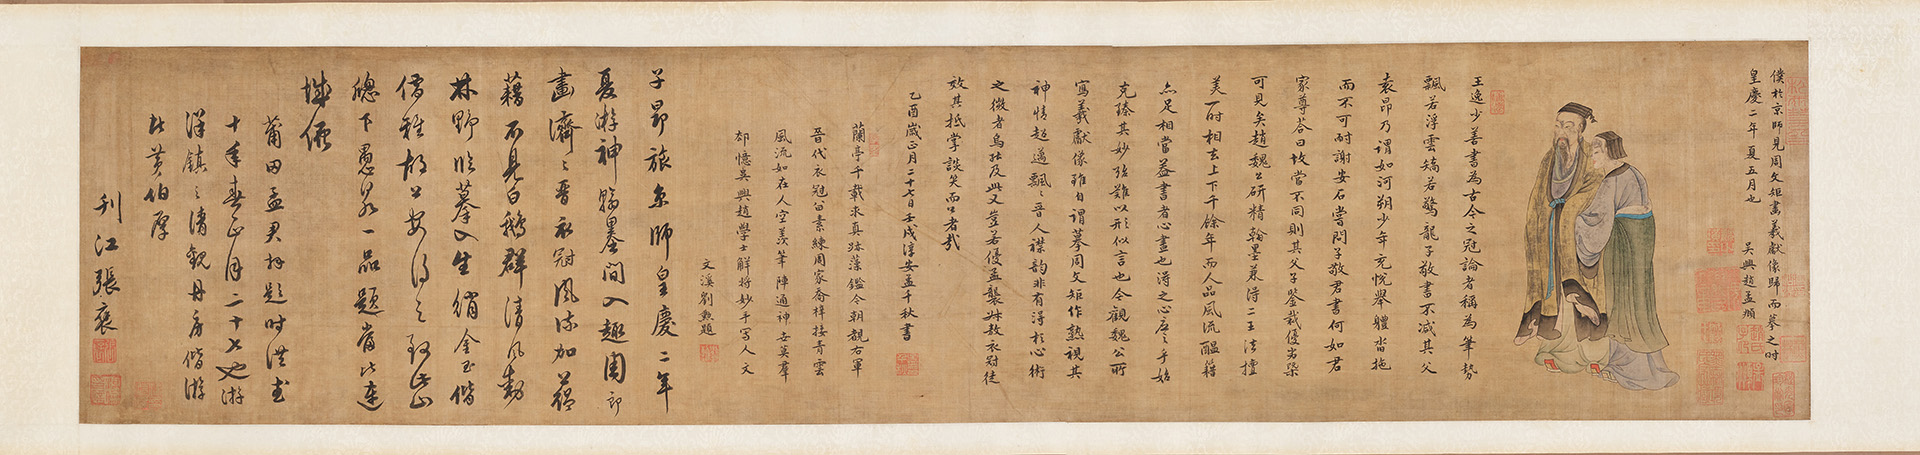 僕於京師見周文矩畫羲獻像歸而摹之時
皇慶二年夏五月也
吳興趙孟頫
王逸少善書為古今之冠論者稱為筆勢
飄若浮雲矯若驚龍子敬書不減其父
袁昂乃謂如河朔少年充悅舉體沓拖
而不可耐謝安石嘗問子敬君書何如君
家尊答曰故當不同則其父子鑒裁優劣槩
可見矣趙魏公研精翰墨兼得二王法擅
美一時相去上下千餘年而人品風流醞籍
亦足相當益書者心畫也得之心應之手始
克臻其妙殆難以形似言也今觀魏公所
寫羲獻像雖自謂摹周文矩作熟視其
神情超邁飄飄晉人襟韵非有得於心術
之微者烏能及此又豈若優孟襲叔敖衣冠徒
效其抵掌談笑而已者哉
乙酉歲正月二十七日壬戌淳安孟千秋書
蘭亭千載求真跡藻鑑今朝觀右軍
晉代衣冠如素練周家喬梓接青雲
風流如在人空羨筆陣通神世莫羣
却憶吳興趙學士解將妙手寫人文
文溪劉題
子昂旅京師皇慶二年
夏游神翰墨間入趣周郎
畫濟濟晉衣冠風流加蘊
藉不見白鵝群清風動
林野臨摹入生綃金玉偕
儒雅故
聰下愚一品題當比連
城價
莆田孟君好題時洪武
十年春正月二十七也游
洋鎮之清觀丹房偕游
者黃伯厚
刊江張褒